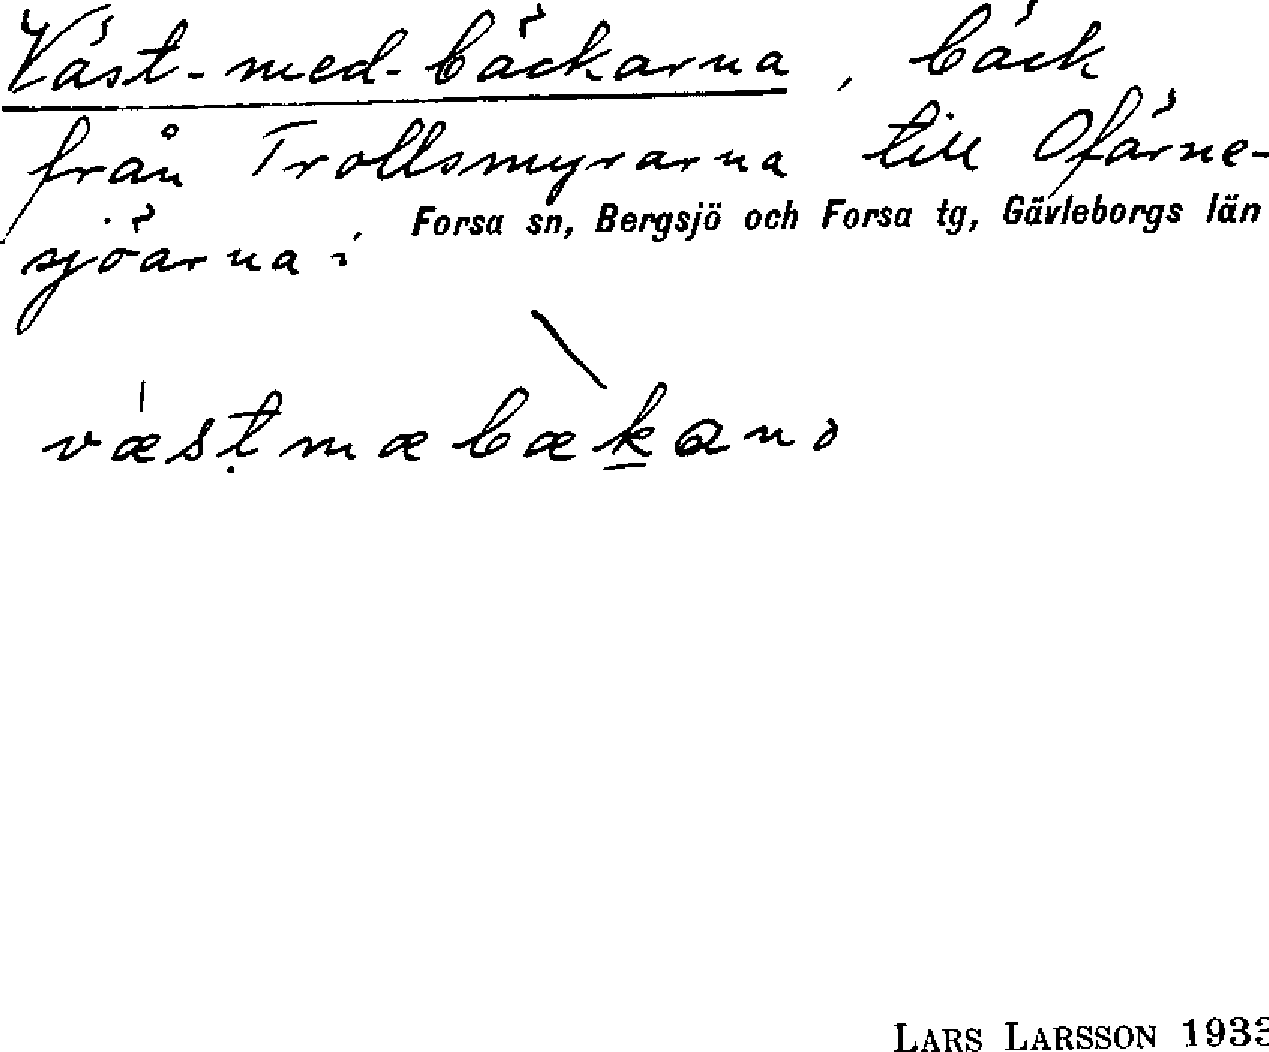 Väst-med-bäckarna, bäck
från Trollsmyrarna till Ofärne-
sjöarna i
Forsa sn, Bergsjö och Forsa tg, Gävleborgs län
væstmæbækanɔ
LARS LARSSON 1933